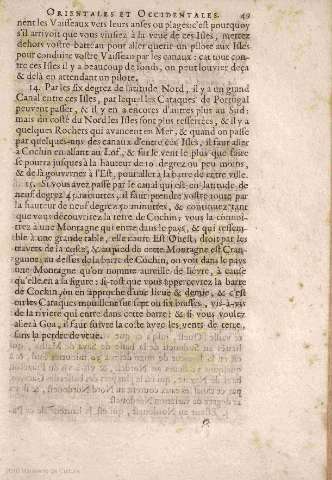 ORIENTALES ET OCCIDENTALES. 49
nent les Vaisseaux vers leurs anses ou plages: c'est pourquoy
s'il arrivoit que vous vinssiez à la veuë de ces Isles, mettez
dehors vostre batteau pour aller querir un pilote aux Isles
pour conduire vostre Vaisseau par les canaux: car tout con-
tre ces Isles il y a beaucoup de fonds, on peut loüvier deça
& delà en attendant un pilote.
14. Par les six degrez de latitude Nord, il y a un grand
Canal entre ces Isles, par lequel les Caraques de Portugal
peuvent passer, & il y en a encores d'autres plus au Sud:
mais du costé du Nord les Isles sont plus resserrées, & il y a
quelques Rochers qui avancent en Mer, & quand on passe
par quelques-uns des canaux d'entre ces Isles, il faut aller
à Cochin en allant au Lof, & sur le vent le plus que faire
se pourra jusques à la hauteur de 10 degrez ou peu moins,
& de là gouverner à l'Est, pour aller à la barre de cette ville.
15. Si vous avez passé par le canal qui est en latitude de
neuf degrez 40 minutes, il faut prendre vostre route par
la hauteur de neuf degrez 50 minutes, & continuez tant
que vous découvriez la terre de Cochin; vous la connoi-
strez à une Montagne qui entre dans le pays, & qui ressem-
ble à une grande table, elle court Est Oüest, droit par les
travers de la coste, & au pied de cette Montagne est Cran-
ganor, au dessus de la barre de Cochin, on voit dans le pays
une Montagne qu'on nomme aureille de lièvre, à cause
qu'elle en a la figure: si-tost que vous appercevrez la barre
de Cochin, on en approche d'une lieuë & demie, & c'est
où les Caraques moüillent sur sept ou six brasses, vis-à-vis
de la riviere qui entre dans cette barre; & si vous voulez
aller à Goa, il faut suivre la coste avec les vents de terre,
sans la perdre de veuë.
G